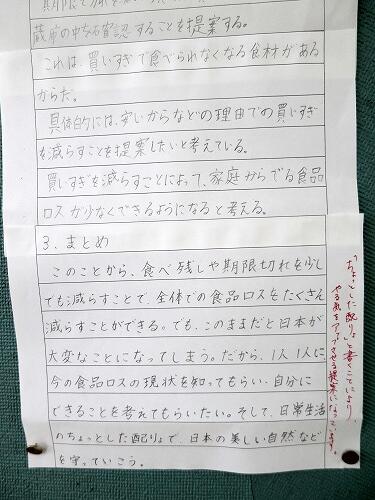 蔵庫の中を確認することを提案する。
これは、買いすぎで食べられなくなる食材がある
からだ。
具体的には、安いからなどの理由での買いすぎ
を減らすことを提案したいと考えている。
買いすぎを減らすことによって、家庭からでる食品
ロスが少なくできるようになると考える。
3.まとめ
このことから、食べ残しや期限切れを少し
でも減らすことで、全体での食品ロスをたくさん
減らすことができる。でも、このままだと日本が
大変なことになってしまう。だから、1人1人に、
今の食品ロスの現状を知ってもらい、自分に
できることを考えてもらいたい。そして、日常生活
のちょっとした配りょで、日本の美しい自然など
を守っていこう。
「ちょっとした配りょ」と書くことにより、
やる気をアップさせる提案になっています。